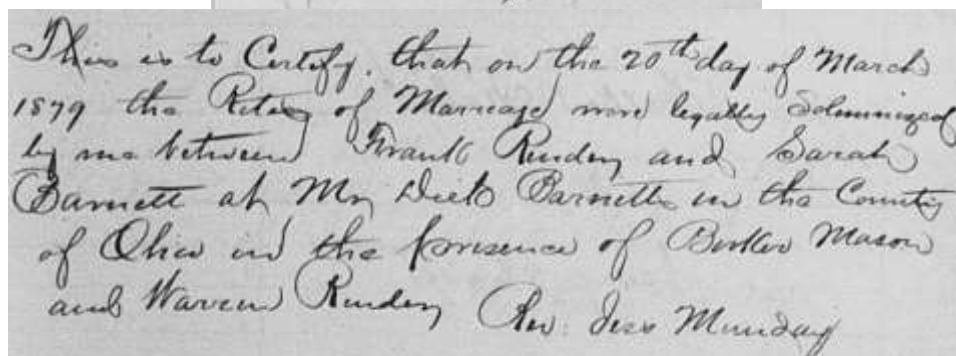 This is to Certify, that on the 20th day of March
1879 the Rites of Marriage were legally Solminized
by me between Frank Render and Sarah
Barnett at Mr Dick Barnetts in the County
of Ohio in the presence of Mason
and Warren Render
Rev. Jess Munday